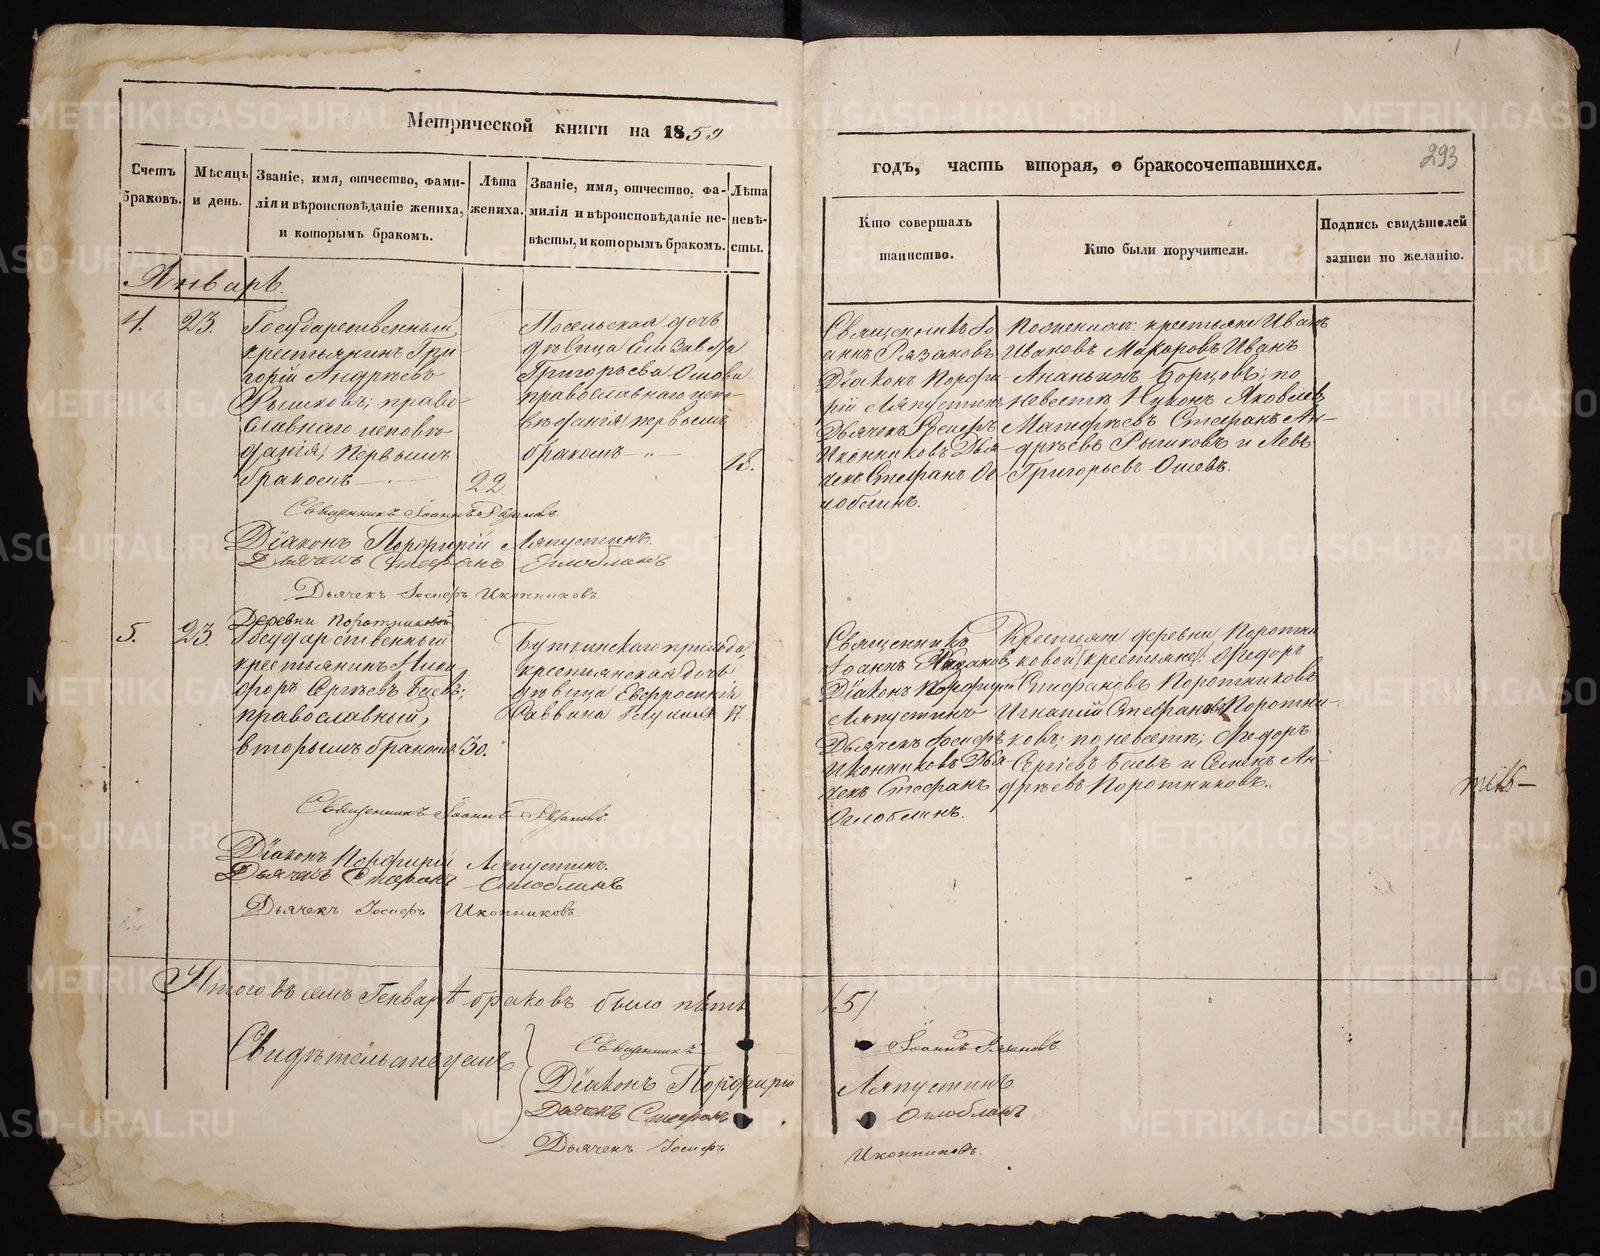 Метрической книги на 1859
годъ, часть вторая, о бракосочетавшихся.
293
Счетъ браковъ.
Мѣсяцъ и день.
Званіе, имя, отчество, фами-
лія и вѣроисповѣданіе жениха,
и которымъ бракомъ.
Лѣта
жениха.
Званіе, имя, отчество, фа-
милія и вѣроисповѣданіе не-
вѣсты, и которымъ бракомъ.
Лѣта
невѣ-
сты.
Кто совершалъ
таинство.
Кто были поручители.
Подпись свидѣтелей
записи по желанію.
Январь
4.
23.
Государственный
крестьянинъ Гри-
горій Андрѣевъ
Рышковъ; право-
славнаго исповѣ-
данія, первымъ
бракомъ
22
дочь
дѣвица Елизавета
Григорьева
православнаго испо-
вѣданія, первымъ
бракомъ
18.
Священникъ Іо-
аннъ Рязановъ
Діаконъ Порфи-
рій Ляпустинъ
Дьячекъ Іосифъ
Иконниковъ Дья-
чекъ Стефанъ Ог-
лоблинъ.
По женихѣ: крестьяне Иванъ
Ивановъ Макаровъ Иванъ
Ананьинъ Борцовъ; по
невестѣ Никонъ Яковлевъ
Матфѣевъ Стефанъ Ан-
дрѣевъ Рышковъ и Левъ
Григорьевъ
Священникъ Іоаннъ Рязановъ.
Діаконъ Порфирій Ляпустинъ.
Дьячекъ Стефанъ Оглоблинъ
Дьячекъ Іосифъ Иконниковъ.
5.
23.
Деревни Поротниковой
Государственный
крестьянинъ Ники-
форъ Сергѣевъ Баевъ;
православный,
вторымъ бракомъ
30.
Буткинскаго прихода,
крестьянская дочь
дѣвица Евфросинія
Саввина
17.
Священникъ
Іоаннъ Рязановъ
Діаконъ Порфирій
Ляпустинъ
Дьячекъ Іосифъ
Иконниковъ Дья-
чекъ Стефанъ
Оглоблинъ.
Крестьяне деревни Поротни-
ковой (крестьяне): Федоръ
Стефановъ Поротниковъ
Игнатій Стефановъ Поротни-
ковъ; по невестѣ; Федоръ
Сергіевъ Баевъ и Семенъ Ан-
дрѣевъ Поротниковъ.
Священникъ Іоаннъ Рязановъ.
Діаконъ Порфирій Ляпустинъ.
Дьячекъ Стефанъ Оглоблинъ
Дьячекъ Іосифъ Иконниковъ.
Итого въ семъ Генварѣ браковъ было пять (5)
Свидѣтельствуемъ
Священникъ Іоаннъ Рязановъ.
Діаконъ Порфирій Ляпустинъ
Дьячекъ Стефанъ Оглоблинъ
Дьячекъ Іосифъ Иконниковъ.
METRIKI.GASO-URAL.RU